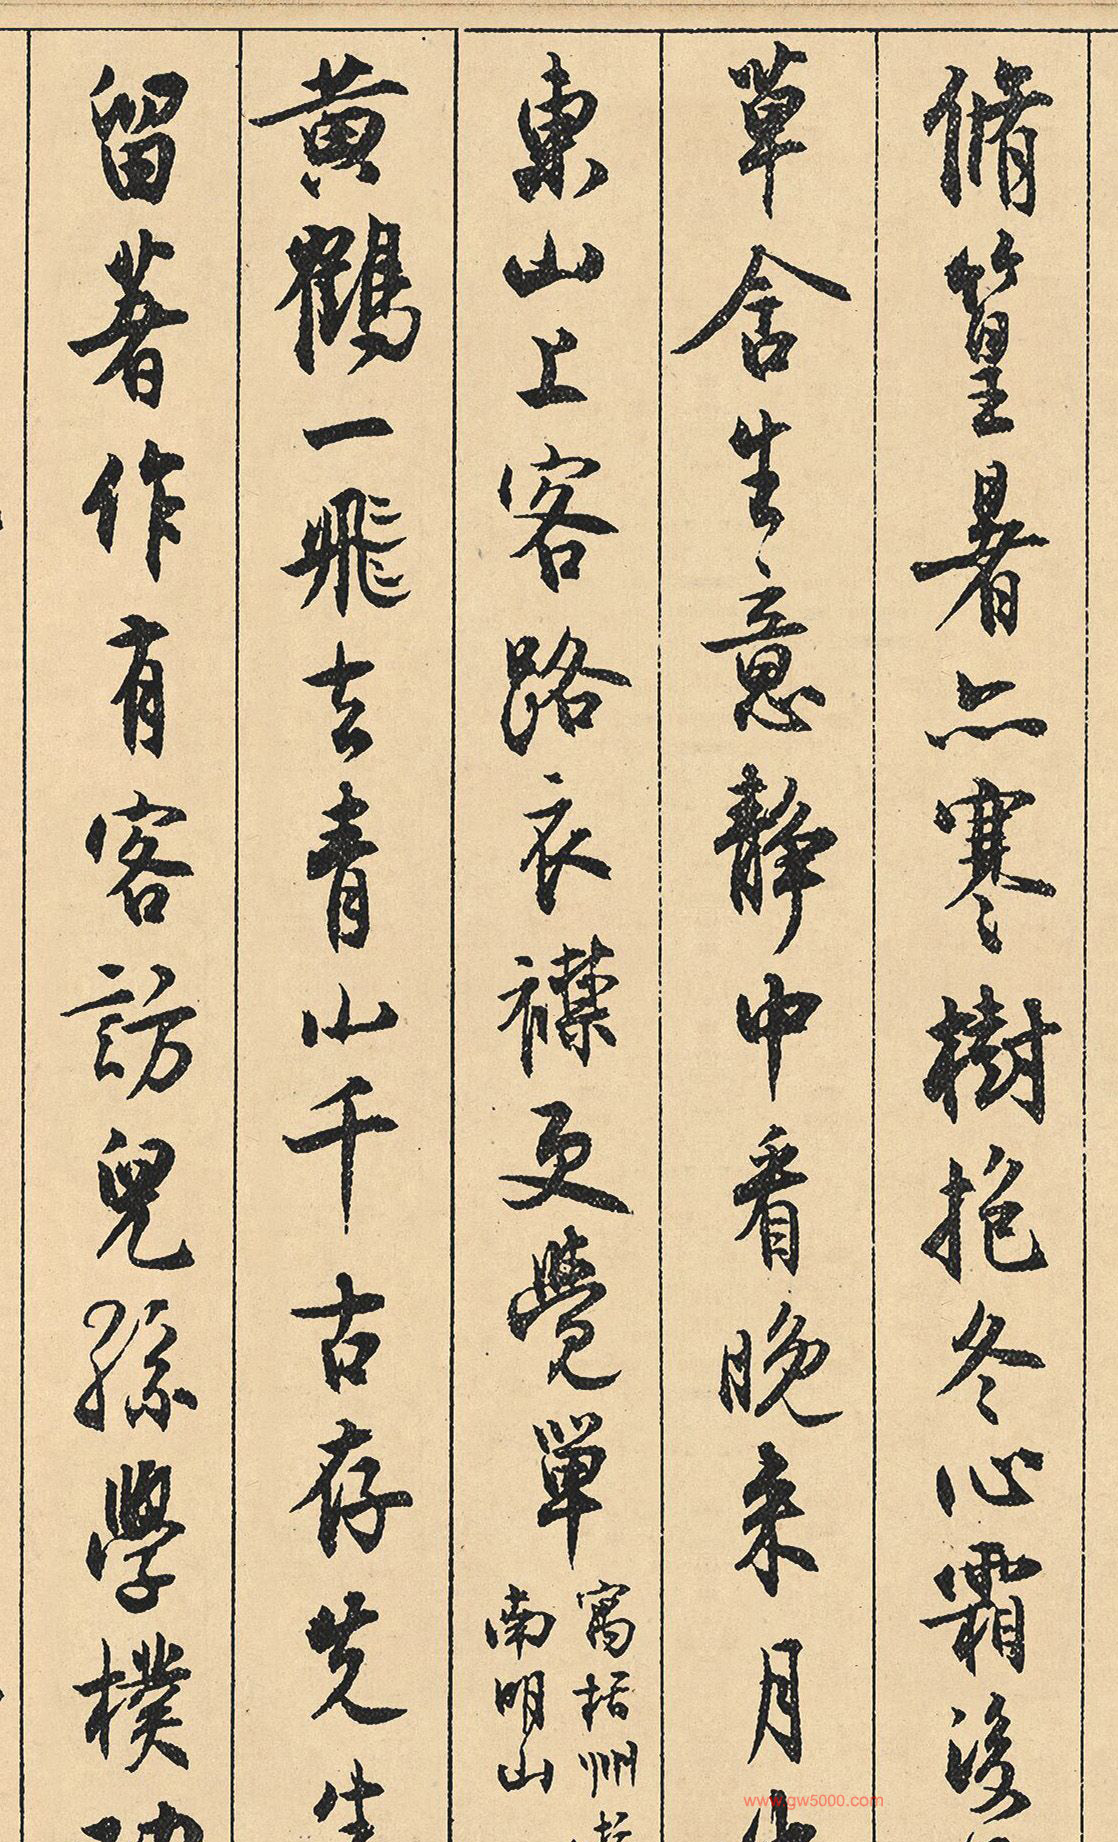 脩篁暑亦寒樹抱冬心霜後
草舍生意静中看晚来月
東山上客路衣襟更覺單
寓括州
南明山
黄鶴一飛去青山千古存先生
留著作有客訪兒孫學樸
www.gw5000.com